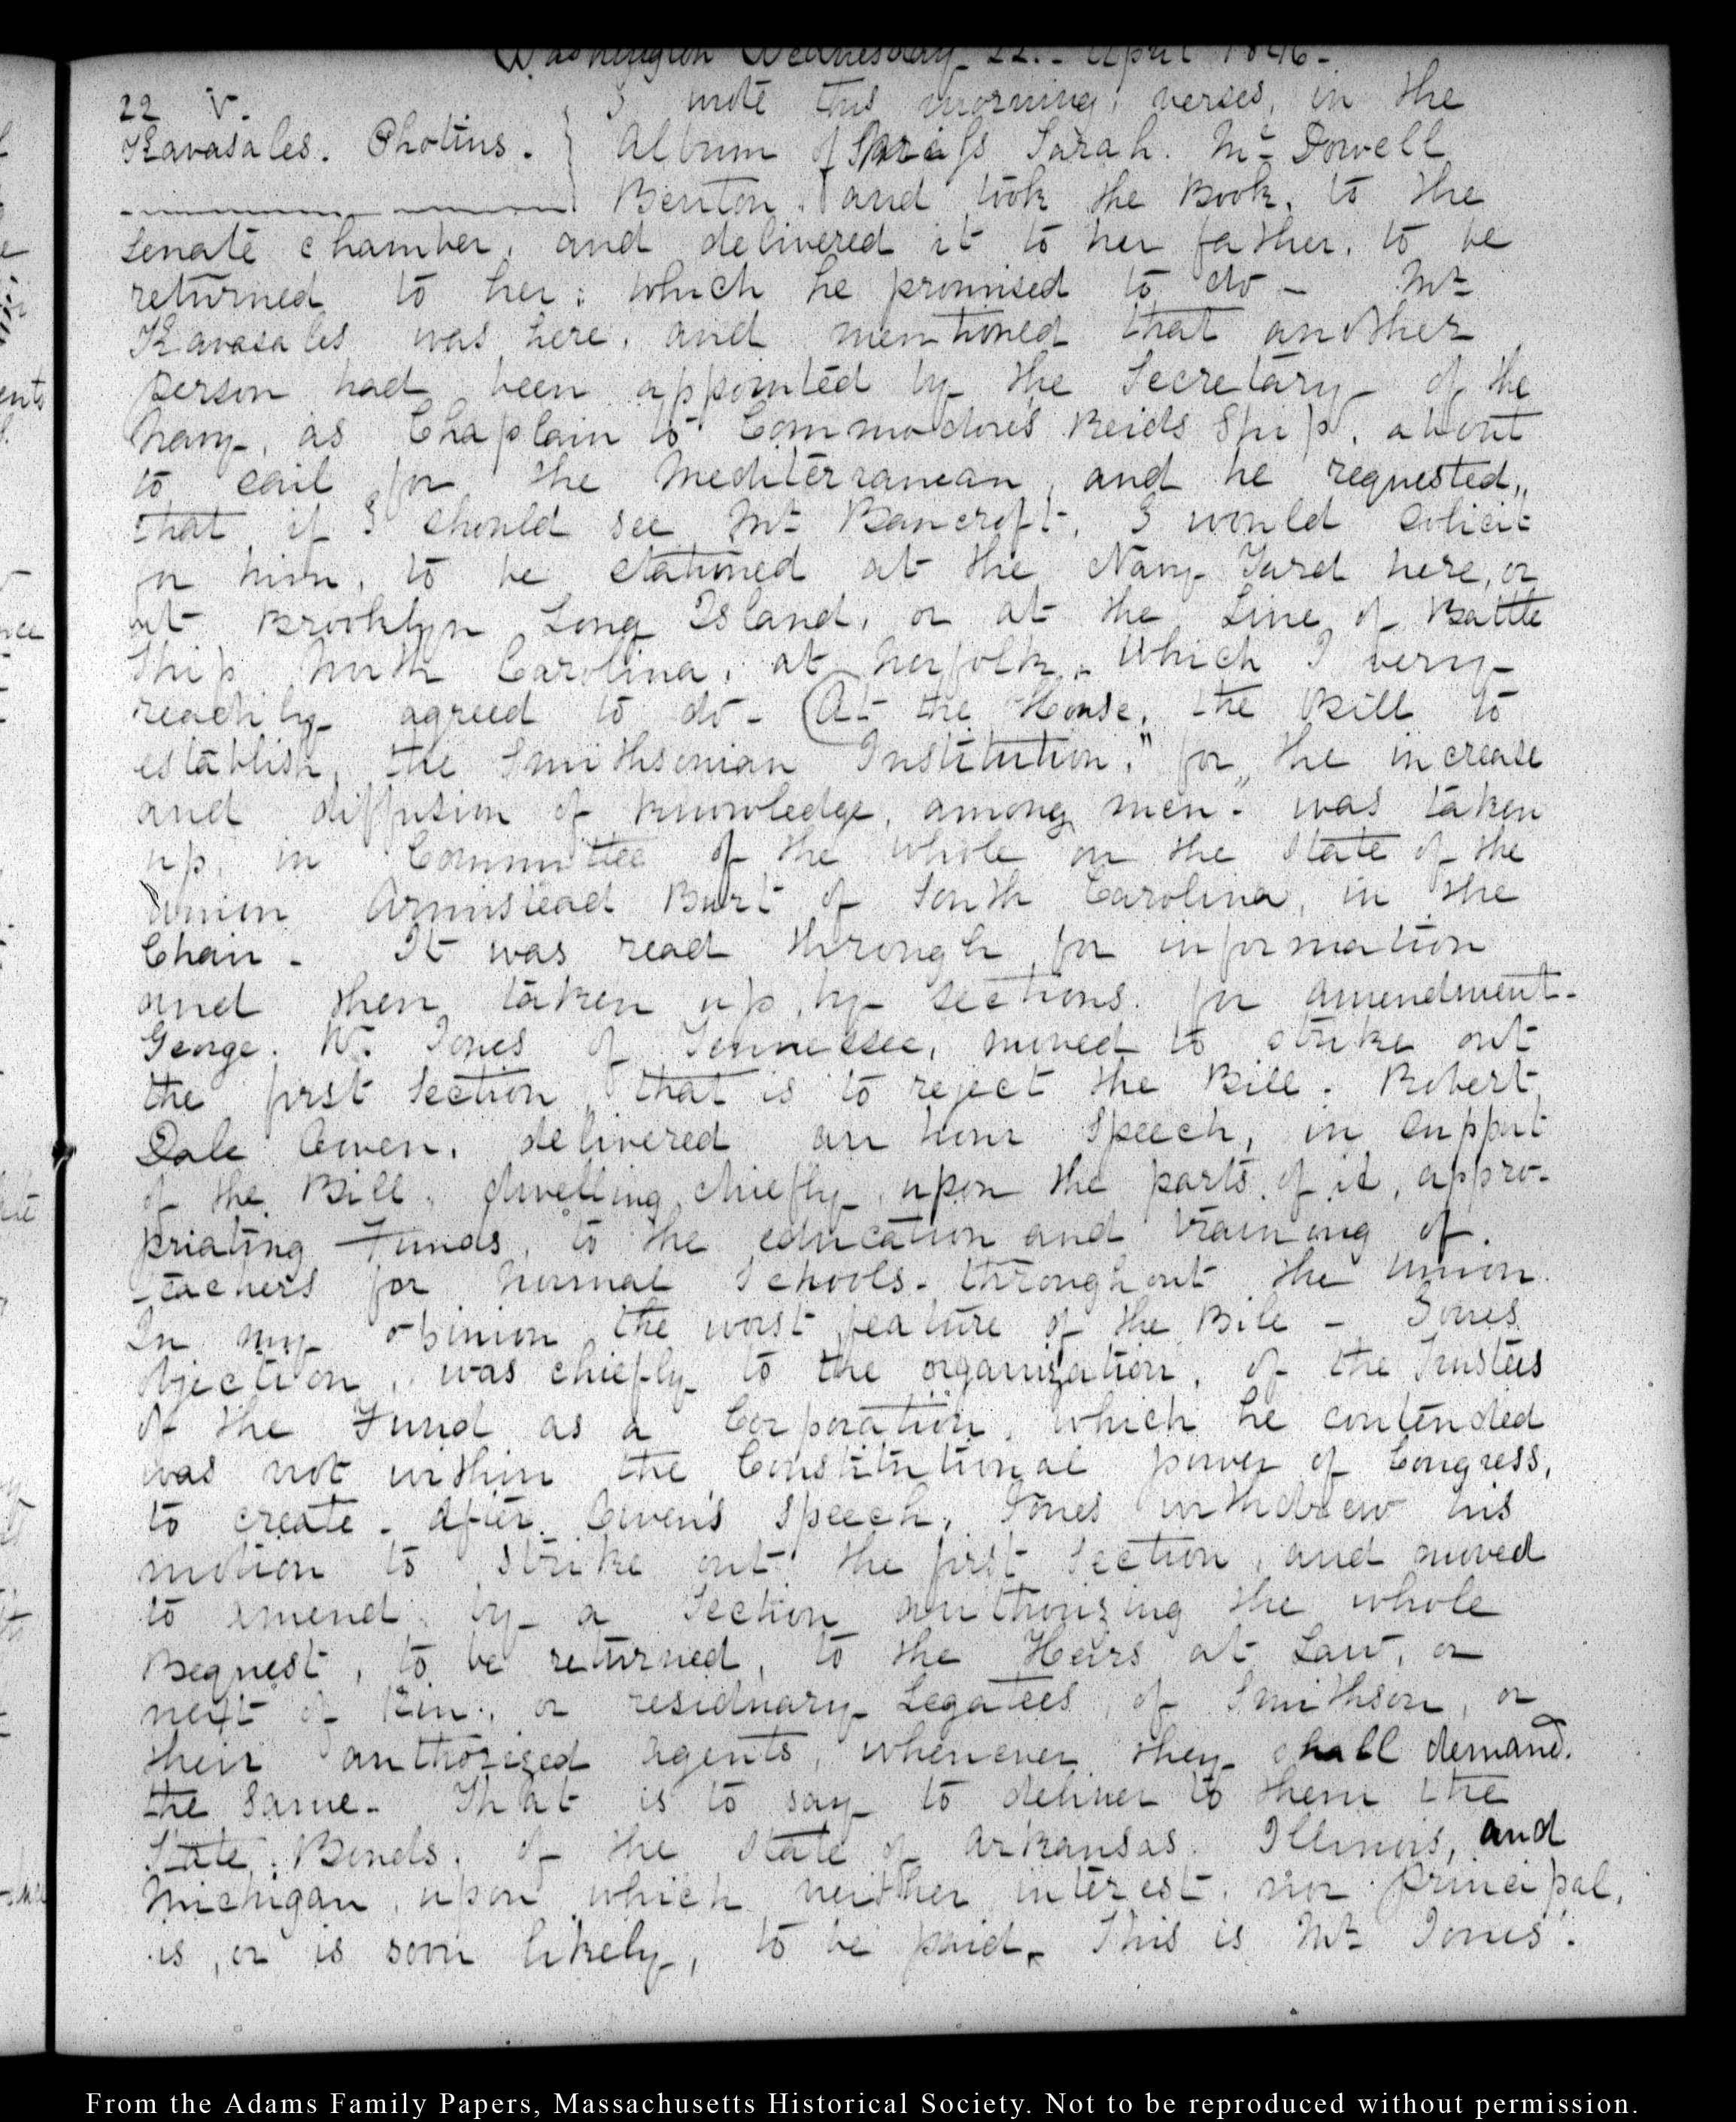 Washington Wednesday 22.- April 1846-
22 V.
Kavasales. Photius.
I wrote this morning, verses, in the
Album of Sarah. Mc Dowell
Benton. and took the Book, to the
Senate chamber, and delivered it to her father, to be
returned to her: which he promised to do - Mr
Kavasales was here, and mentioned that another
person had been appointed by the Secretary of the
Navy, as Chaplain to Commodore's Reids Ship, about
to sail for the Mediterranean, and he requested,
that if I should see Mr Bancroft, I would solicit
for him, to be stationed at the Navy Yard here, or
at Brooklyn Long Island, or at the Line of Battle
Ship North Carolina, at Norfolk, which I very
readily agreed to do- At the House, the Bill to
establish, the Smithsonian Institution," for "the increase
and diffusion of knowledge, among men". was taken
up, in Committee of the whole on the state of the
Union Armistead Burt of South Carolina, in the
Chair - It was read through for information
and then taken up, by sections. for amendment-
George. W. Jones of Tennessee, moved to strike out
the first Section, that is to reject the Bill. Robert
Dale Owen, delivered an hour Speech, in support
of the Bill. dwelling chiefly, upon the parts of it, appro-
priating Funds, to the education and training of.
teachers for Normal Schools- throughout the Union.
In my opinion the worst feature of the Bill - Jones
objection, was chiefly to the organization, of the Trustees
of the Fund as a Corporation, which he contended
was not within the Constitutional power of Congress,
to create. After Owen's Speech, Jones withdrew his
motion to strike out the first Section, and moved
to amend by a Section authorizing the whole
Bequest, to be returned, to the Heirs at Law, or
next of kin, or residuary Legatees, of Smithson, or
their authorized agents, whenever they shall demand.
the same- That is to say to deliver to them the
State Bonds, of the State of Arkansas. Illinois, and
Michigan, upon which neither interest, nor principal,
is, or is soon likely, to be paid. This is Mr Jones'.
From the Adams Family Papers, Massachusetts Historical Society. Not to be reproduced without permission.